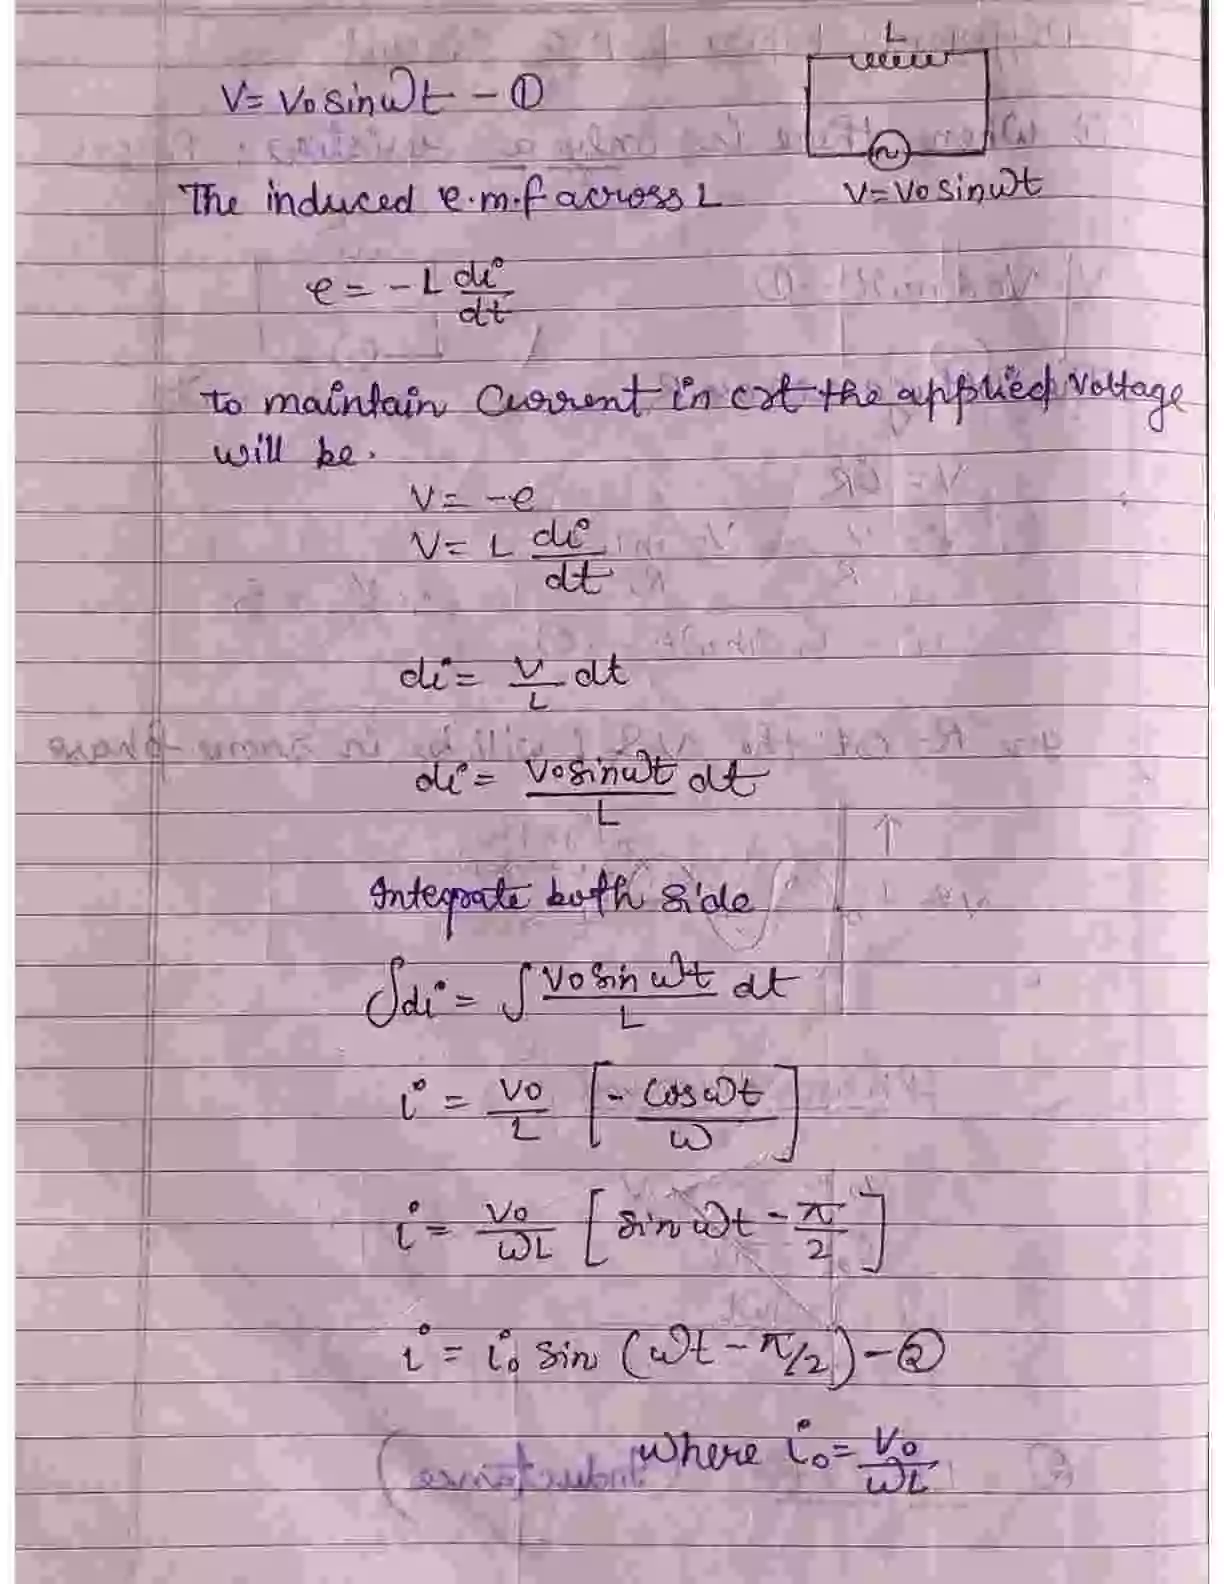 L
V= V₀ sinωt - ①
V=V₀ sinωt
The induced e.m.f across L
e = -L di/dt
to maintain Current in crt the applied Voltage
will be.
V= -e
V= L di/dt
di = V/L dt
di = V₀sinωt/L dt
Integrate both side
∫di = ∫ V₀ sin ωt/L dt
i = V₀/L [- cosωt/ω]
i = V₀/ωL [sin ωt - π/2]
i = i₀ sin (ωt - π/2) - ②
where i₀ = V₀/ωL